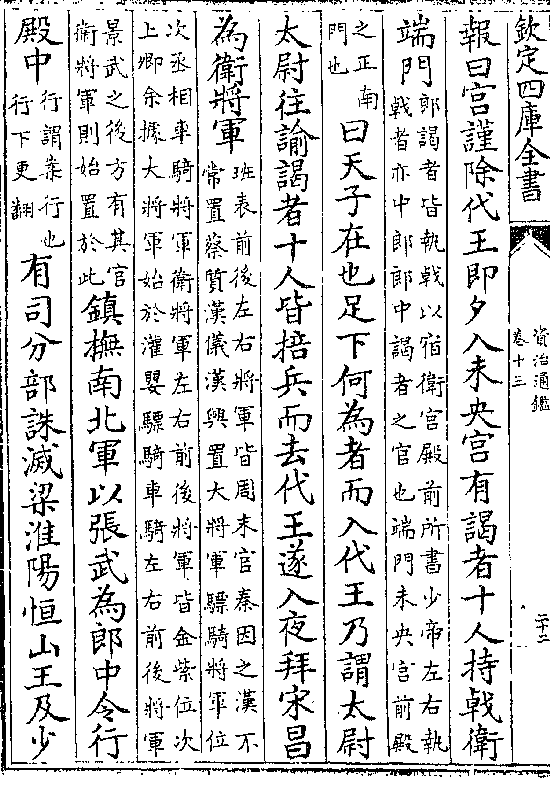 欽定四庫全書
資治通鑑
卷十三
二十二
報曰宫謹除代王即夕入未央宫有謁者十人持㦸衛
端門
郎謁者皆執㦸以宿衛宫殿前所書少帝左右執
㦸者亦中郎郎中謁者之官也端門未央宫前殿
之正南
門也
曰天子在也足下何為者而入代王乃謂太尉
太尉往諭謁者十人皆掊兵而去代王遂入夜拜宋昌
為衛將軍
班表前後左右將軍皆周末官秦因之漢不
常置蔡質漢儀漢興置大將軍驃騎將軍位
次丞相車騎將軍衛將軍左右前後將軍皆金紫位次
上卿余據大將軍始於灌嬰驃騎車騎左右前後將軍
景武之後方有其官
衛將軍則始置於此
鎮撫南北軍以張武為郎中令行
殿中
行謂案行也
行下更翻
有司分部誅滅梁淮陽恒山王及少